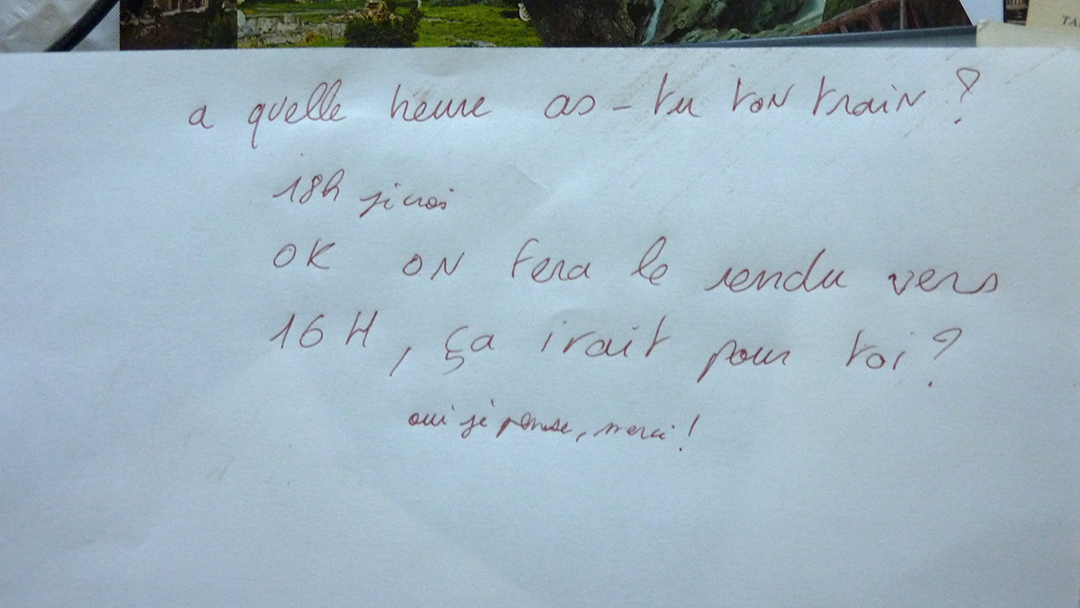 a quelle heure as-tu ton train ?
18h je crois
OK ON fera le rendu vers
16H, ça irait pour toi ?
oui je pense, merci !
TA